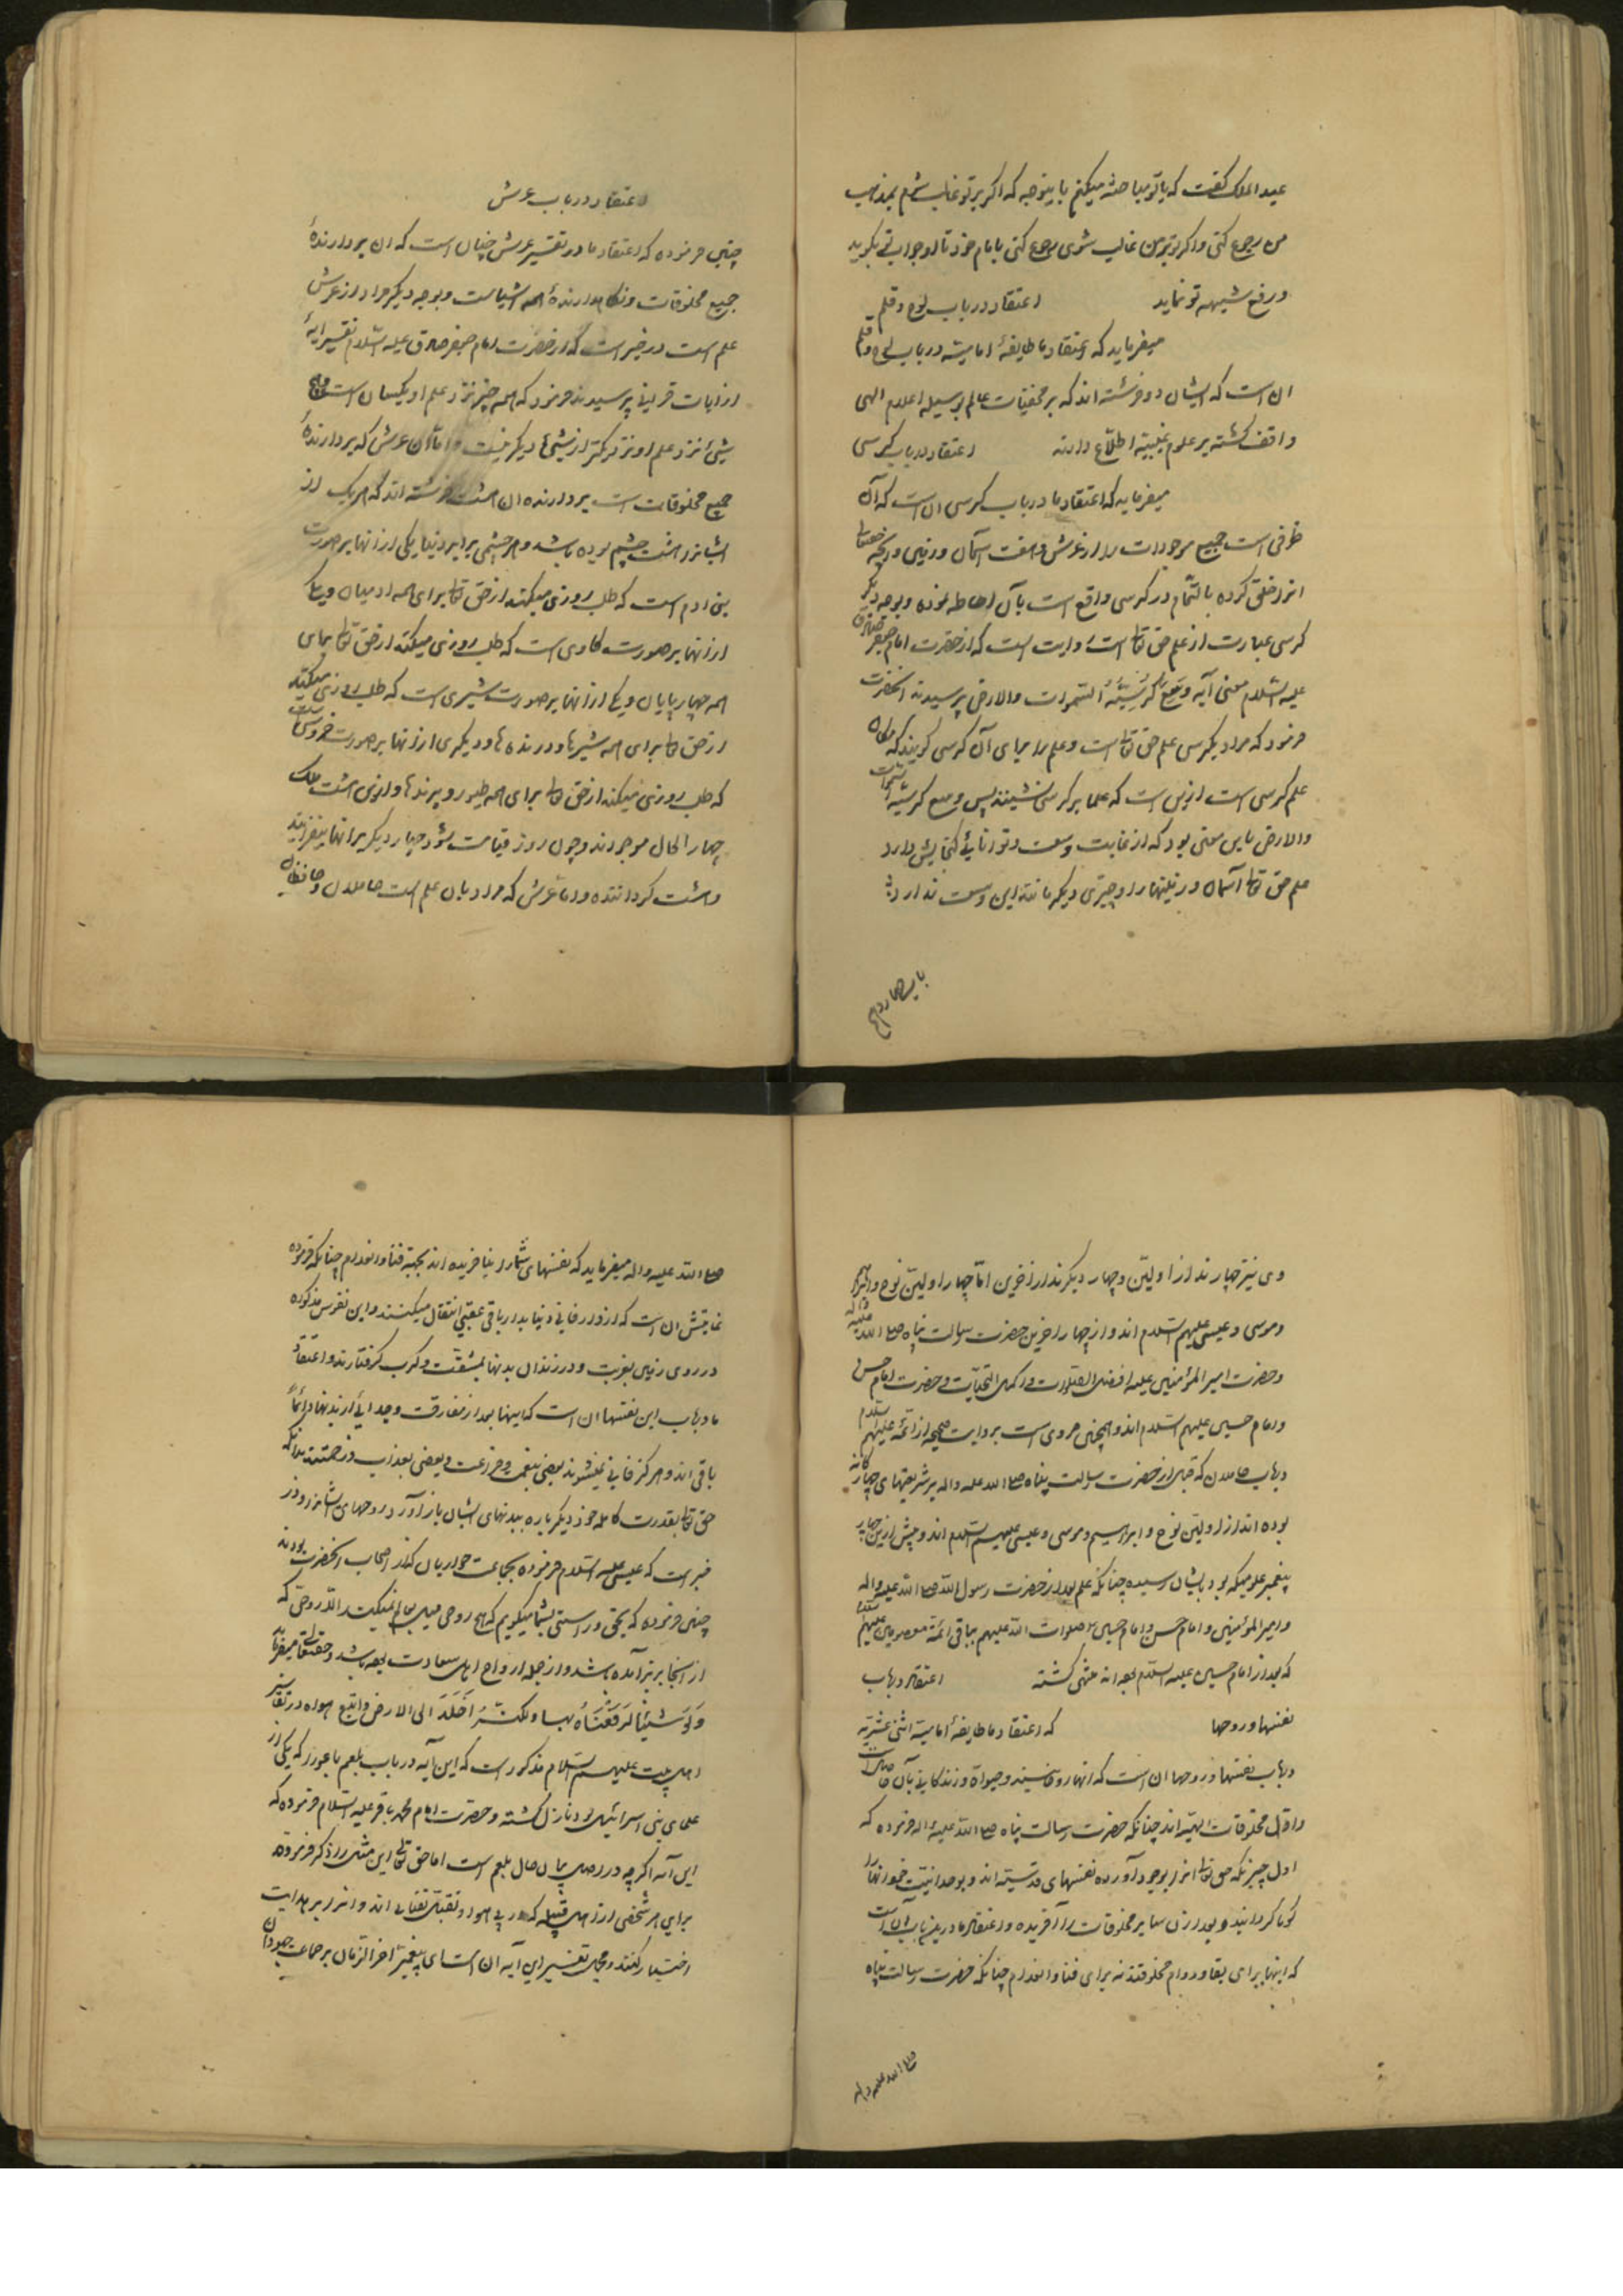 عبد الملک گفت که با تو مباحثه میکنم باینوجه که اگر بر تو غالب شوم بمذهب
من رجوع کنی و اگر تو بر من غالب شوی رجوع کنی بامام خود تا او جواب بگوید
و رفع شبهه تو نماید اعتقاد در باب لوح و قلم
میفرماید که اعتقاد ما طایفهٔ امامیته در باب لوح و قلم
ان است که ایشان دو فرشته اند که بر مخفیات عالم بوسیله اعلام الهی
واقف گشته بر علوم غیبیه اطلاع دارند اعتقاد در باب کرسی
میفرماید که اعتقاد ما در باب کرسی ان است که آن
ظرفی است جمیع موجودات را از عرش و هفت آسمان و زمین و هرچه حقتعالی
انرا خلق کرده بالتمام در کرسی واقع است بآن احاطه نموده و بوجه دیگر
کرسی عبارت از علم حق تعالی است روایت است که از حضرت امام جعفر صادق
علیه السلام معنی آیه وسع کرسیّه السموات والارض پرسیدند انحضرت
فرمود که مراد بکرسی علم حق تعالی است و علم را برای آن کرسی گویند که مکان
علم کرسی است ازین است که علما بر کرسی نشینند پس وسع کرسیه السموات
والارض باین معنی بود که از غایت وسعت و توانائی گنجایش دارد
علم حق تعالی آسمان و زمینها را و چیزی دیگر مانند این وسعت ندارد
باب چهاردهم
اعتقاد در باب عرش
چنین فرموده که اعتقاد ما در تفسیر عرش چنان است که ان بردارندهٔ
جمیع مخلوقات و نگاهدارندهٔ همه اشیاست و بوجه دیگر مراد از عرش
علم است در خبر است که از حضرت امام جعفر صادق علیه السلام تفسیر ایهٔ
از ایات قرانی پرسیدند فرمود که همه چیز نزد علم او یکسان است
شیئ نزد علم او نزدیکتر از شیئ دیگر نیست و اما آن عرش که بردارندهٔ
جمیع مخلوقات است بردارنده ان هشت فرشته اند که هریک از
ایشانرا هشت چشم بوده باشد و هر چشمی برابر دنیا یکی از انها بر صورت
بنی ادم است که طلب روزی میکند از حق تعالی برای همه ادمیان و یکی
از انها بر صورت گاوی است که طلب روزی میکند از حق تعالی برای
همه چهارپایان و یکی از انها بر صورت شیری است که طلب روزی میکند
از حق تعالی برای همه شیرها و درنده ها و دیگری از انها بر صورت خروس است
که طلب روزی میکند از حق تعالی برای همه طیور و پرندها و ازین هشت ملک
چهار الحال موجودند و چون روز قیامت شود چهار دیگر بر انها بیفزایند
و هشت گردانند و اما عرش که مراد بان علم است حاملان و حافظان
وی نیز چهارند از اولین و چهار دیگرند از اخرین امّا چهار اولین نوح و ابراهیم
و موسی و عیسی علیهم السلام اند و از چهار اخرین حضرت رسالت پناه صلی الله علیه واله
و حضرت امیر المؤمنین علیه افضل الصلوات و اکمل التحیّات و حضرت امام حسن
و امام حسین علیهم السلام اند و همچنین مروی است بروایت صحیحه از ائمّه علیهم السلام
در باب حاملان که قبل از حضرت رسالت پناه صلی الله علیه واله بر شریعتهای چهارکانه
بوده اند از اولین نوح و ابراهیم و موسی و عیسی علیهم السلام اند و پیش ازین چهار
پیغمبر علومیکه بود بایشان رسیده چنانکه علم بعد از حضرت رسول الله صلی الله علیه واله
و امیر المؤمنین و امام حسن و امام حسین صلوات الله علیهم بباقی ائمّه معصومین علیهم السلام
که بعد از امام حسین علیه السلام بوده اند منتهی گشته اعتقاد در باب
نفسها و روحها که اعتقاد ما طایفهٔ امامیّه اثنی عشریّه
در باب نفسها و روحها ان است که انها روحانیند و حیوة و زندگانی بآن حاصل است
و اوّل مخلوقات الهیّه اند چنانکه حضرت رسالت پناه صلی الله علیه واله فرموده که
اول چیزیکه حق تعالی انرا بوجود آورده نفسهای قدسیّه اند و بوحدانیت خود انها را
گویا گردانید و بعد از ان سایر مخلوقات را آفریده و اعتقاد ما در این باب آن است
که اینها برای بقا و دوام مخلوقند نه برای فنا و انعدام چنانکه حضرت رسالت پناه
صلی الله علیه واله
صلی الله علیه واله میفرماید که نفسهای شما را نیافریده اند بجهة فنا و انعدام چنانکه فرموده
نمایش ان است که از دار فانی دنیا بدار باقی عقبی انتقال میکنند و این نفوس مذکوره
در روی زمین بغربت و در زندان بدنها بمشقّت و کرب گرفتارند و اعتقاد
ما در باب این نفسها ان است که اینها بعد از مفارقت و جدائی از بدنها دائماً
باقی اند و هرگز فانی نمیشوند بعضی بنعمت و فراغت و بعضی بعذاب و زحمتند تا انکه
حق تعالی بقدرت کامله خود دیگر باره ببدنهای ایشان باز آورد روحهای ایشانرا و در
خبر است که عیسی علیه السلام فرموده بجماعت حواریان که از اصحاب انحضرت بودند
چنین فرموده که بحق و راستی بشما میگویم که هیچ روحی میل بعالم نمیکند الّا روحی که
از انجا برتر آمده باشد و از جمله ارواح اهل سعادت بوده باشد و حقتعالی میفرماید
وَلَو شِئنا لَرَفَعناهُ بها ولکنّهُ اَخلَدَ الی الارض واتّبع هواه در تفاسیر
اهل بیت علیهم السلام مذکور است که این آیه در باب بلعم باعورا که یکی از
علمای بنی اسرائیل بود نازل گشته و حضرت امام محمد باقر علیه السلام فرموده که
این آیه اگرچه در اصل بیان حال بلعم است اما حق تعالی این مثل را ذکر فرموده
برای هر شخصی از اهل قبله که در پی هوا و نفسانی اند و انرا بر هدایت
اختیار کنند و مجمل تفسیر این آیه ان است ای پیغمبر اخر الزمان بر جماعت جهودان